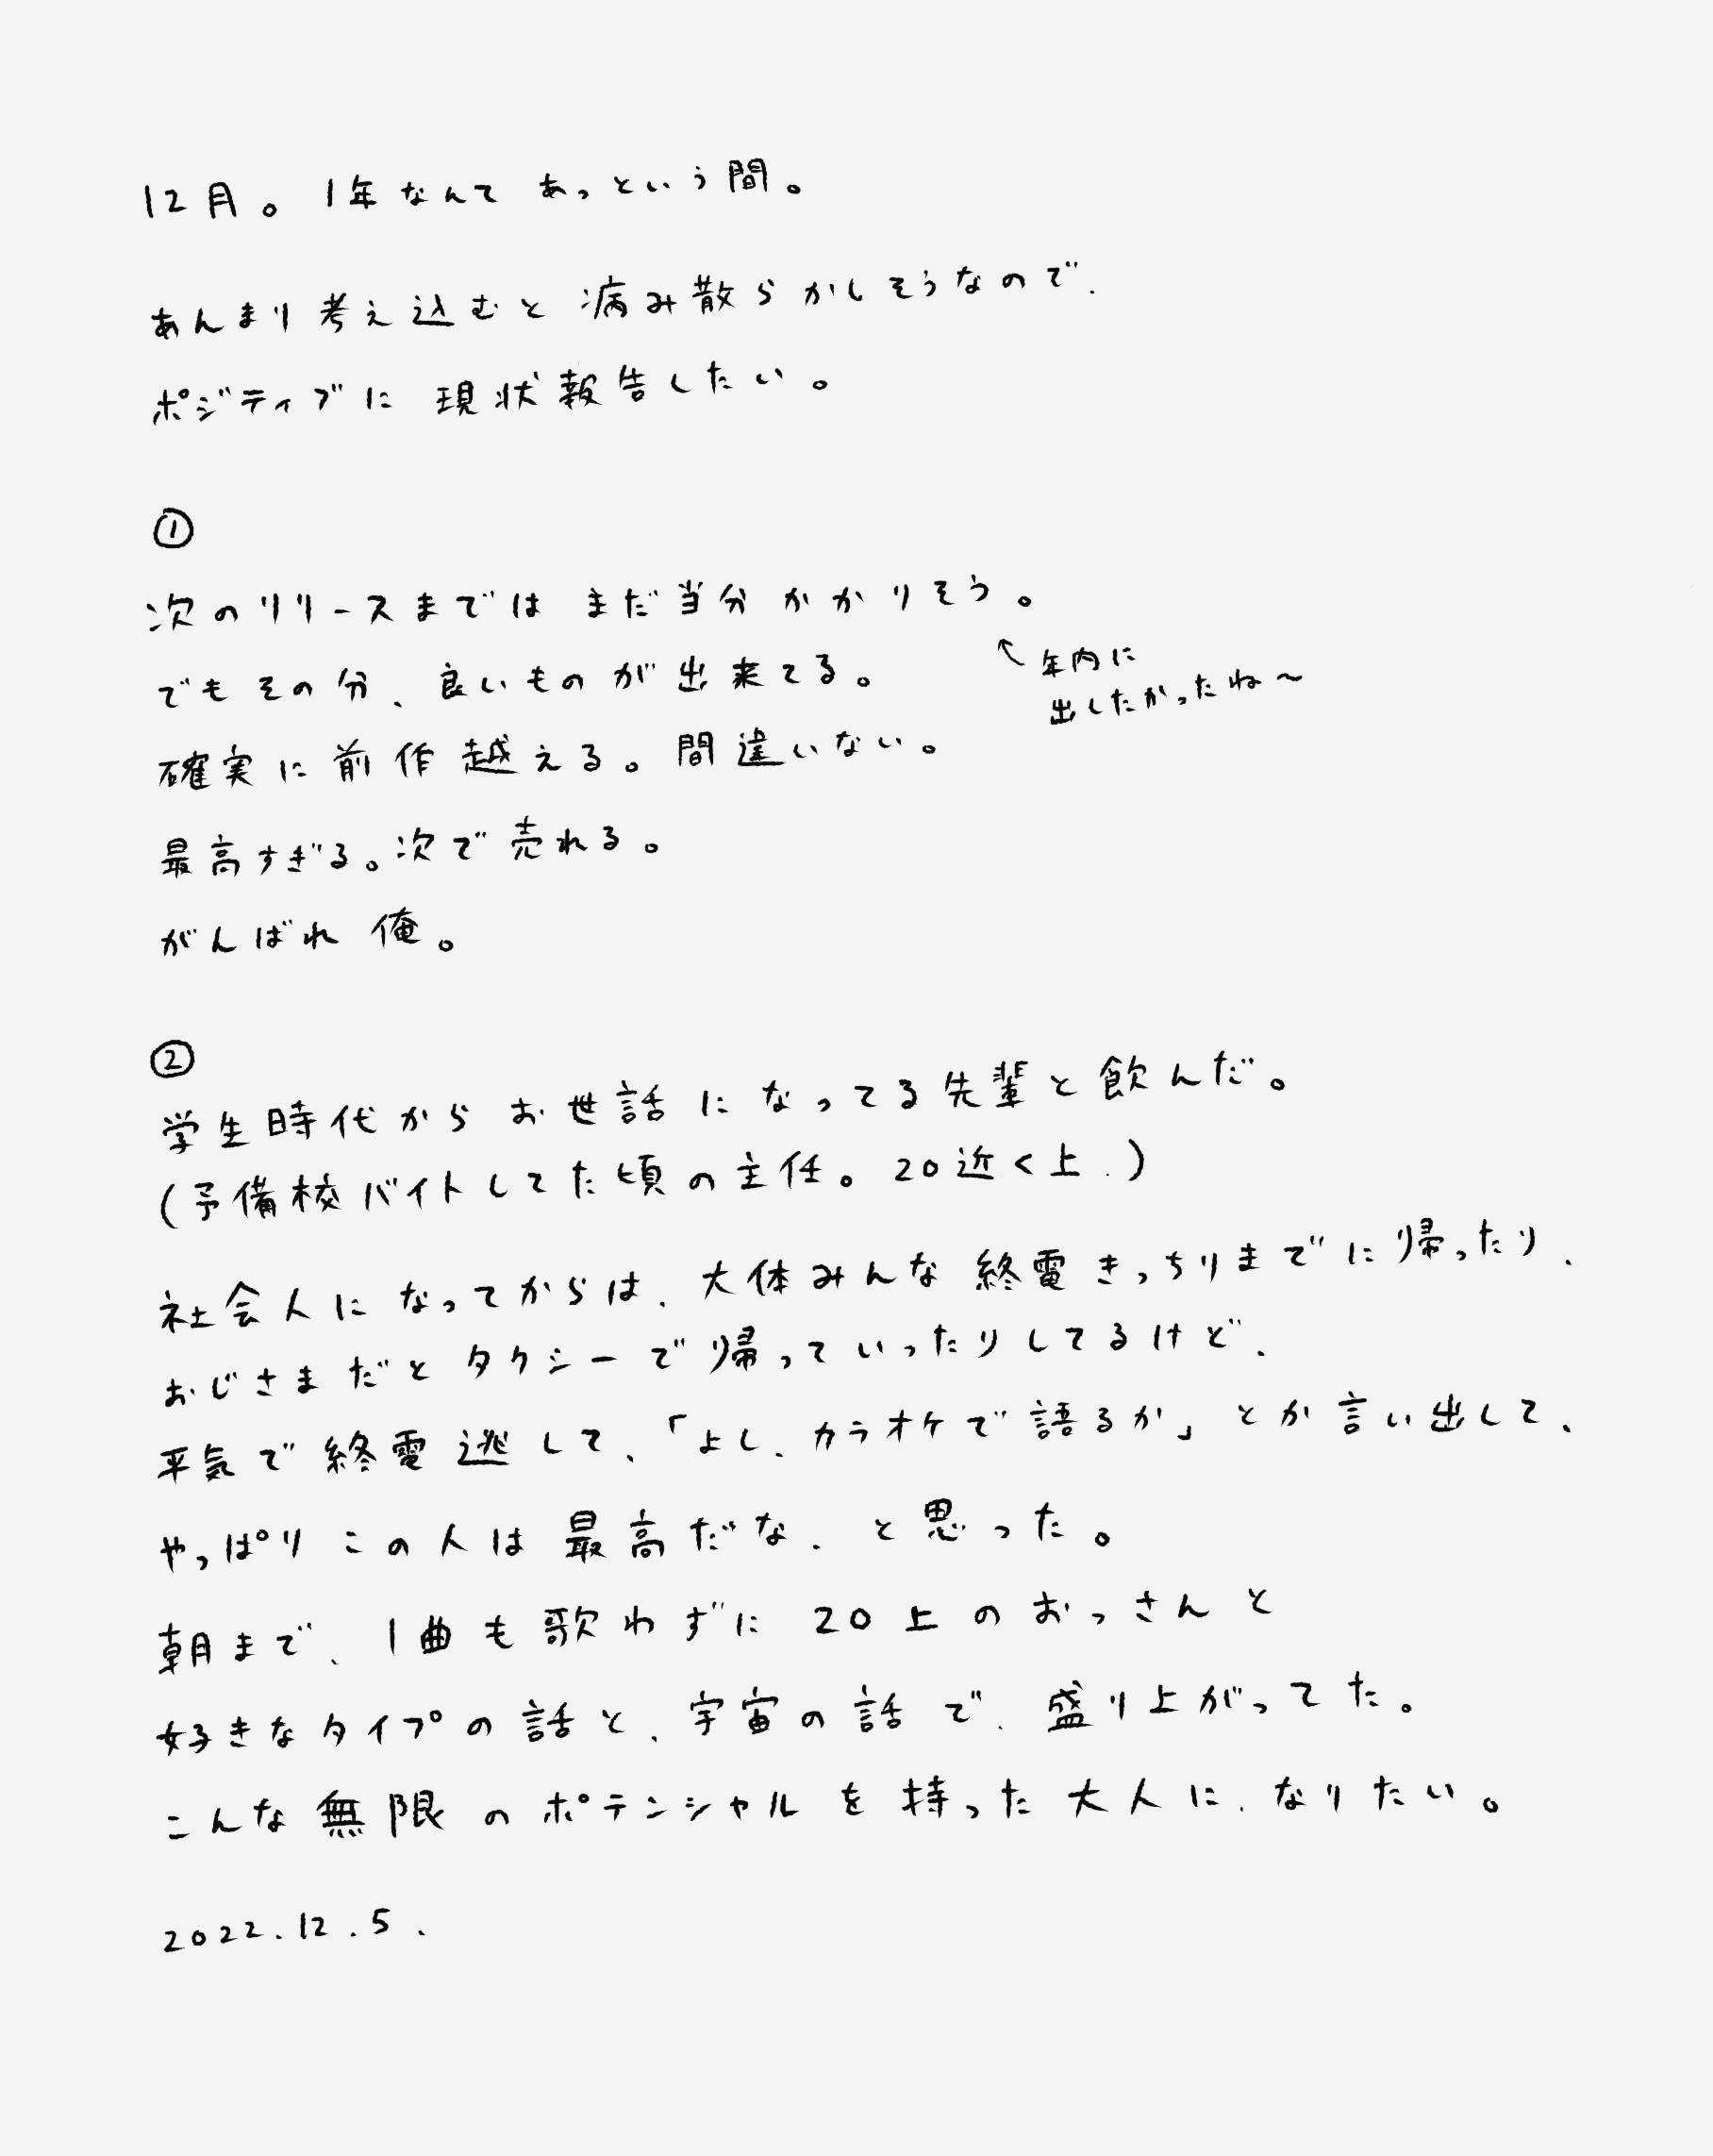 12月。1年なんてあっという間。
あんまり考え込むと病み散らかしそうなので、
ポジティブに現状報告したい。
①
次のリリースまではまだ当分かかりそう。
↖年内に
出したかったね〜
でもその分、良いものが出来てる。
確実に前作越える。間違いない。
最高すぎる。次で売れる。
がんばれ俺。
②
学生時代からお世話になってる先輩と飲んだ。
(予備校バイトしてた頃の主任。20近く上.)
社会人になってからは、大体みんな終電きっちりまでに帰ったり、
おじさまだとタクシーで帰っていったりしてるけど、
平気で終電逃して、「よし、カラオケで語るか」とか言い出して、
やっぱりこの人は最高だな、と思った。
朝まで、1曲も歌わずに20上のおっさんと
好きなタイプの話と、宇宙の話で、盛り上がってた。
こんな無限のポテンシャルを持った大人に、なりたい。
2022.12.5.